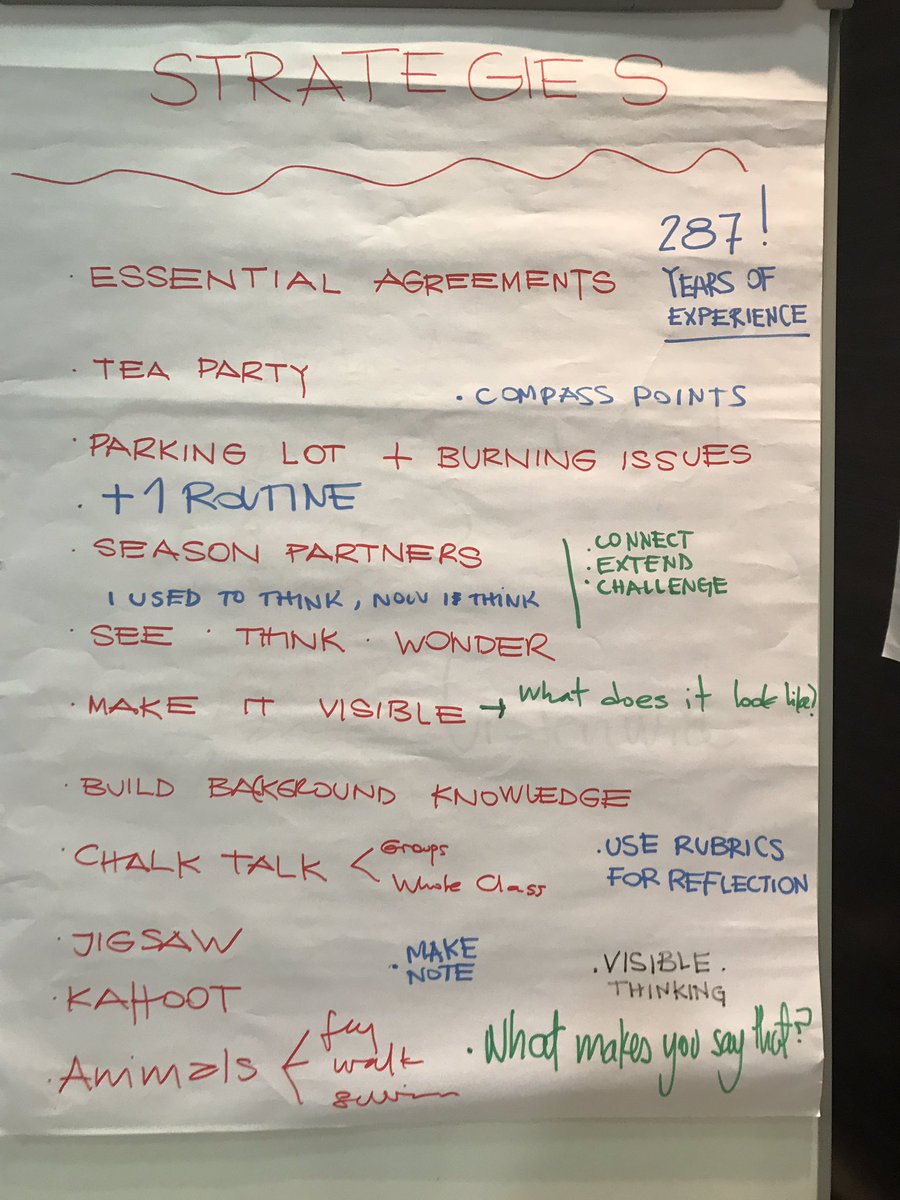 STRATEGIES
287!
YEARS OF
EXPERIENCE
· ESSENTIAL AGREEMENTS
· TEA PARTY
· COMPASS POINTS
· PARKING LOT + BURNING ISSUES
· +1 ROUTINE
· SEASON PARTNERS
· CONNECT
· EXTEND
· CHALLENGE
I USED TO THINK, NOW I THINK
· SEE · THINK · WONDER
· MAKE IT VISIBLE → What does it look like?
· BUILD BACKGROUND KNOWLEDGE
· CHALK TALK < Groups
Whole Class
· USE RUBRICS
FOR REFLECTION
· JIGSAW
· MAKE
NOTE
· VISIBLE
THINKING
· KAHOOT
· Animals < fly
walk
swim
· What makes you say that?